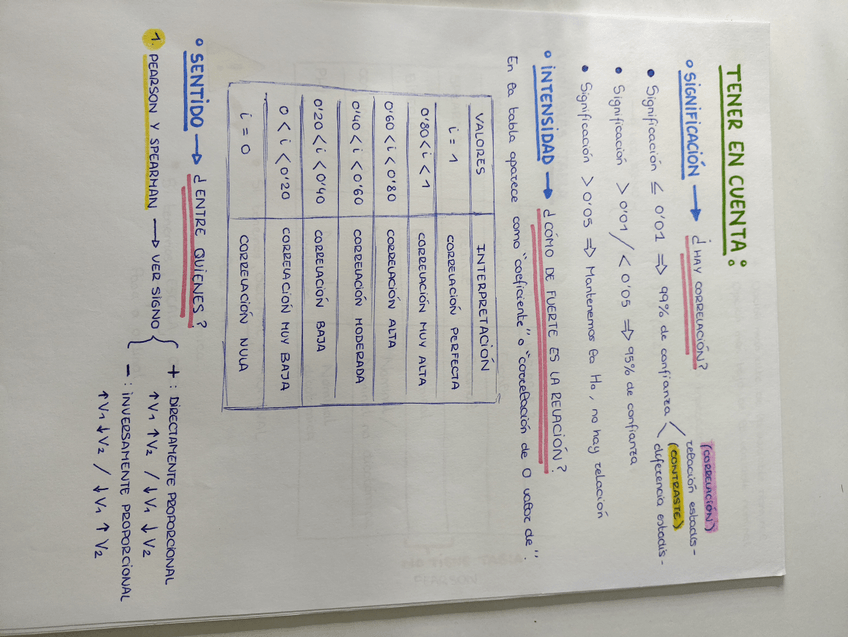 TENER EN CUENTA:
° SIGNIFICACIÓN → ¿HAY CORRELACIÓN?
(CORRELACIÓN)
relación estadis-
• Significación ≤ 0'01 ⇒ 99% de confianza <
(CONTRASTE)
diferencia estadis-
• Significación > 0'01 / < 0'05 ⇒ 95% de confianza
• Significación > 0'05 ⇒ Mantenemos la Ho, no hay relación
° INTENSIDAD → ¿CÓMO DE FUERTE ES LA RELACIÓN?
En la tabla aparece como "coeficiente" o "correlación de O valor de".
VALORES INTERPRETACIÓN
i = 1 CORRELACIÓN PERFECTA
0'80 < i < 1 CORRELACIÓN MUY ALTA
0'60 < i < 0'80 CORRELACIÓN ALTA
0'40 < i < 0'60 CORRELACIÓN MODERADA
0'20 < i < 0'40 CORRELACIÓN BAJA
0 < i < 0'20 CORRELACIÓN MUY BAJA
i = 0 CORRELACIÓN NULA
° SENTIDO → ¿ENTRE QUIENES?
1. PEARSON Y SPEARMAN → VER SIGNO {
+ : DIRECTAMENTE PROPORCIONAL
↑V1 ↑V2 / ↓V1 ↓V2
- : INVERSAMENTE PROPORCIONAL
↑V1 ↓V2 / ↓V1 ↑V2